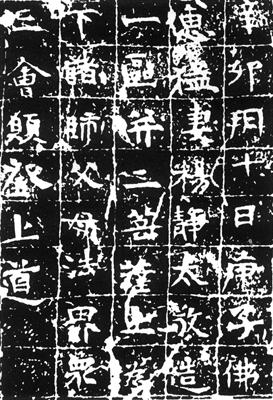 辛卯朔十日庚子佛
妻楊靜太敬造
一區并二菩薩上為
下諸師父母法界眾
三會願登上道